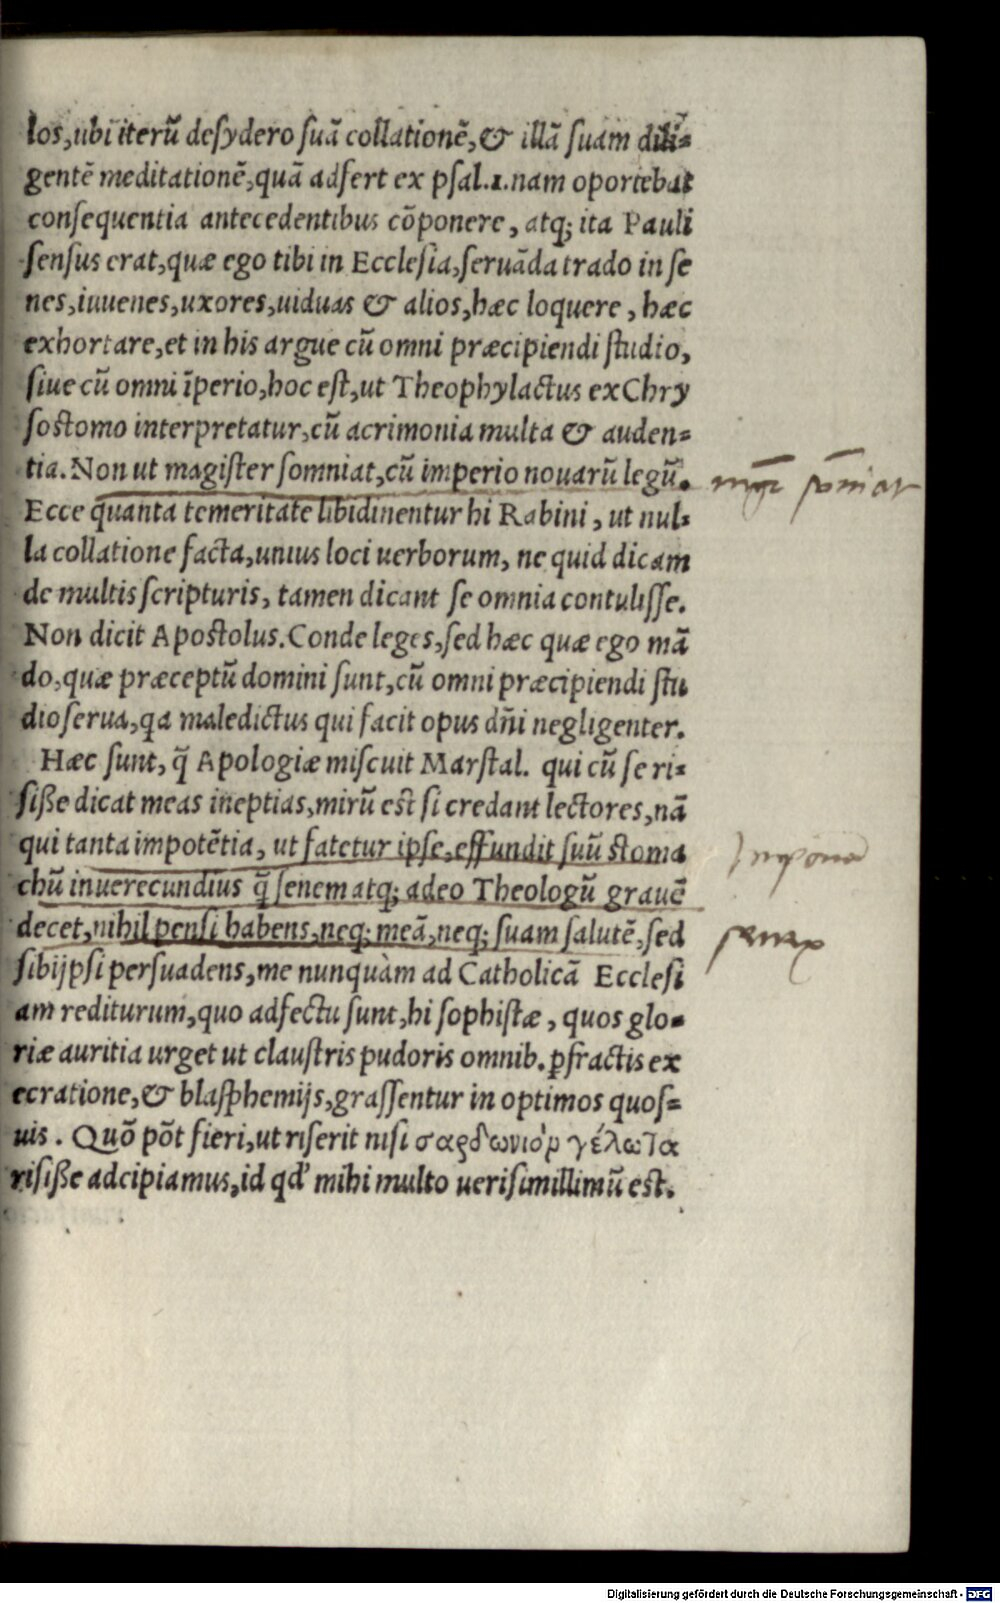 los,ubi iterū desydero suā collationē,& illā suam dili=
gentē meditationē,quā adfert ex psal.1.nam oportebat
consequentia antecedentibus cōponere, atq; ita Pauli
sensus erat,quæ ego tibi in Ecclesia,seruāda trado in se
nes,iuuenes,uxores,uiduas & alios,hæc loquere, hæc
exhortare,et in his argue cū omni præcipiendi studio,
siue cū omni īperio,hoc est,ut Theophylactus ex Chry
sostomo interpretatur,cū acrimonia multa & auden=
tia. Non ut magister somniat,cū imperio nouarū legū.
mgr somniat
Ecce quanta temeritate libidinentur hi Rabini, ut nul=
la collatione facta,unius loci uerborum, ne quid dicam
de multis scripturis, tamen dicant se omnia contulisse.
Non dicit Apostolus.Conde leges,sed hæc quæ ego mā
do,quæ præceptū domini sunt,cū omni præcipiendi stu
dio serua,qa maledictus qui facit opus dñi negligenter.
Hæc sunt, q̄ Apologiæ miscuit Marstal. qui cū se ri=
siße dicat meas ineptias,mirū est si credant lectores,nā
qui tanta impotētia, ut fatetur ipse,effundit suū stoma
chū inuerecundius q̄ senem atq; adeo Theologū grauē
decet,nihil pensi habens,neq; meā,neq; suam salutē,sed
senex
sibijpsi persuadens,me nunquàm ad Catholicā Ecclesi
am rediturum,quo adfectu sunt,hi sophistæ, quos glo=
riæ auritia urget ut claustris pudoris omnib. ꝑfractis ex
ecratione,& blasphemijs,grassentur in optimos quos=
uis. Quō pōt fieri,ut riserit nisi σαρδωνιὸν γέλωτα
risiße adcipiamus,id qd' mihi multo uerisimillimū est.
Digitalisierung gefördert durch die Deutsche Forschungsgemeinschaft - DFG